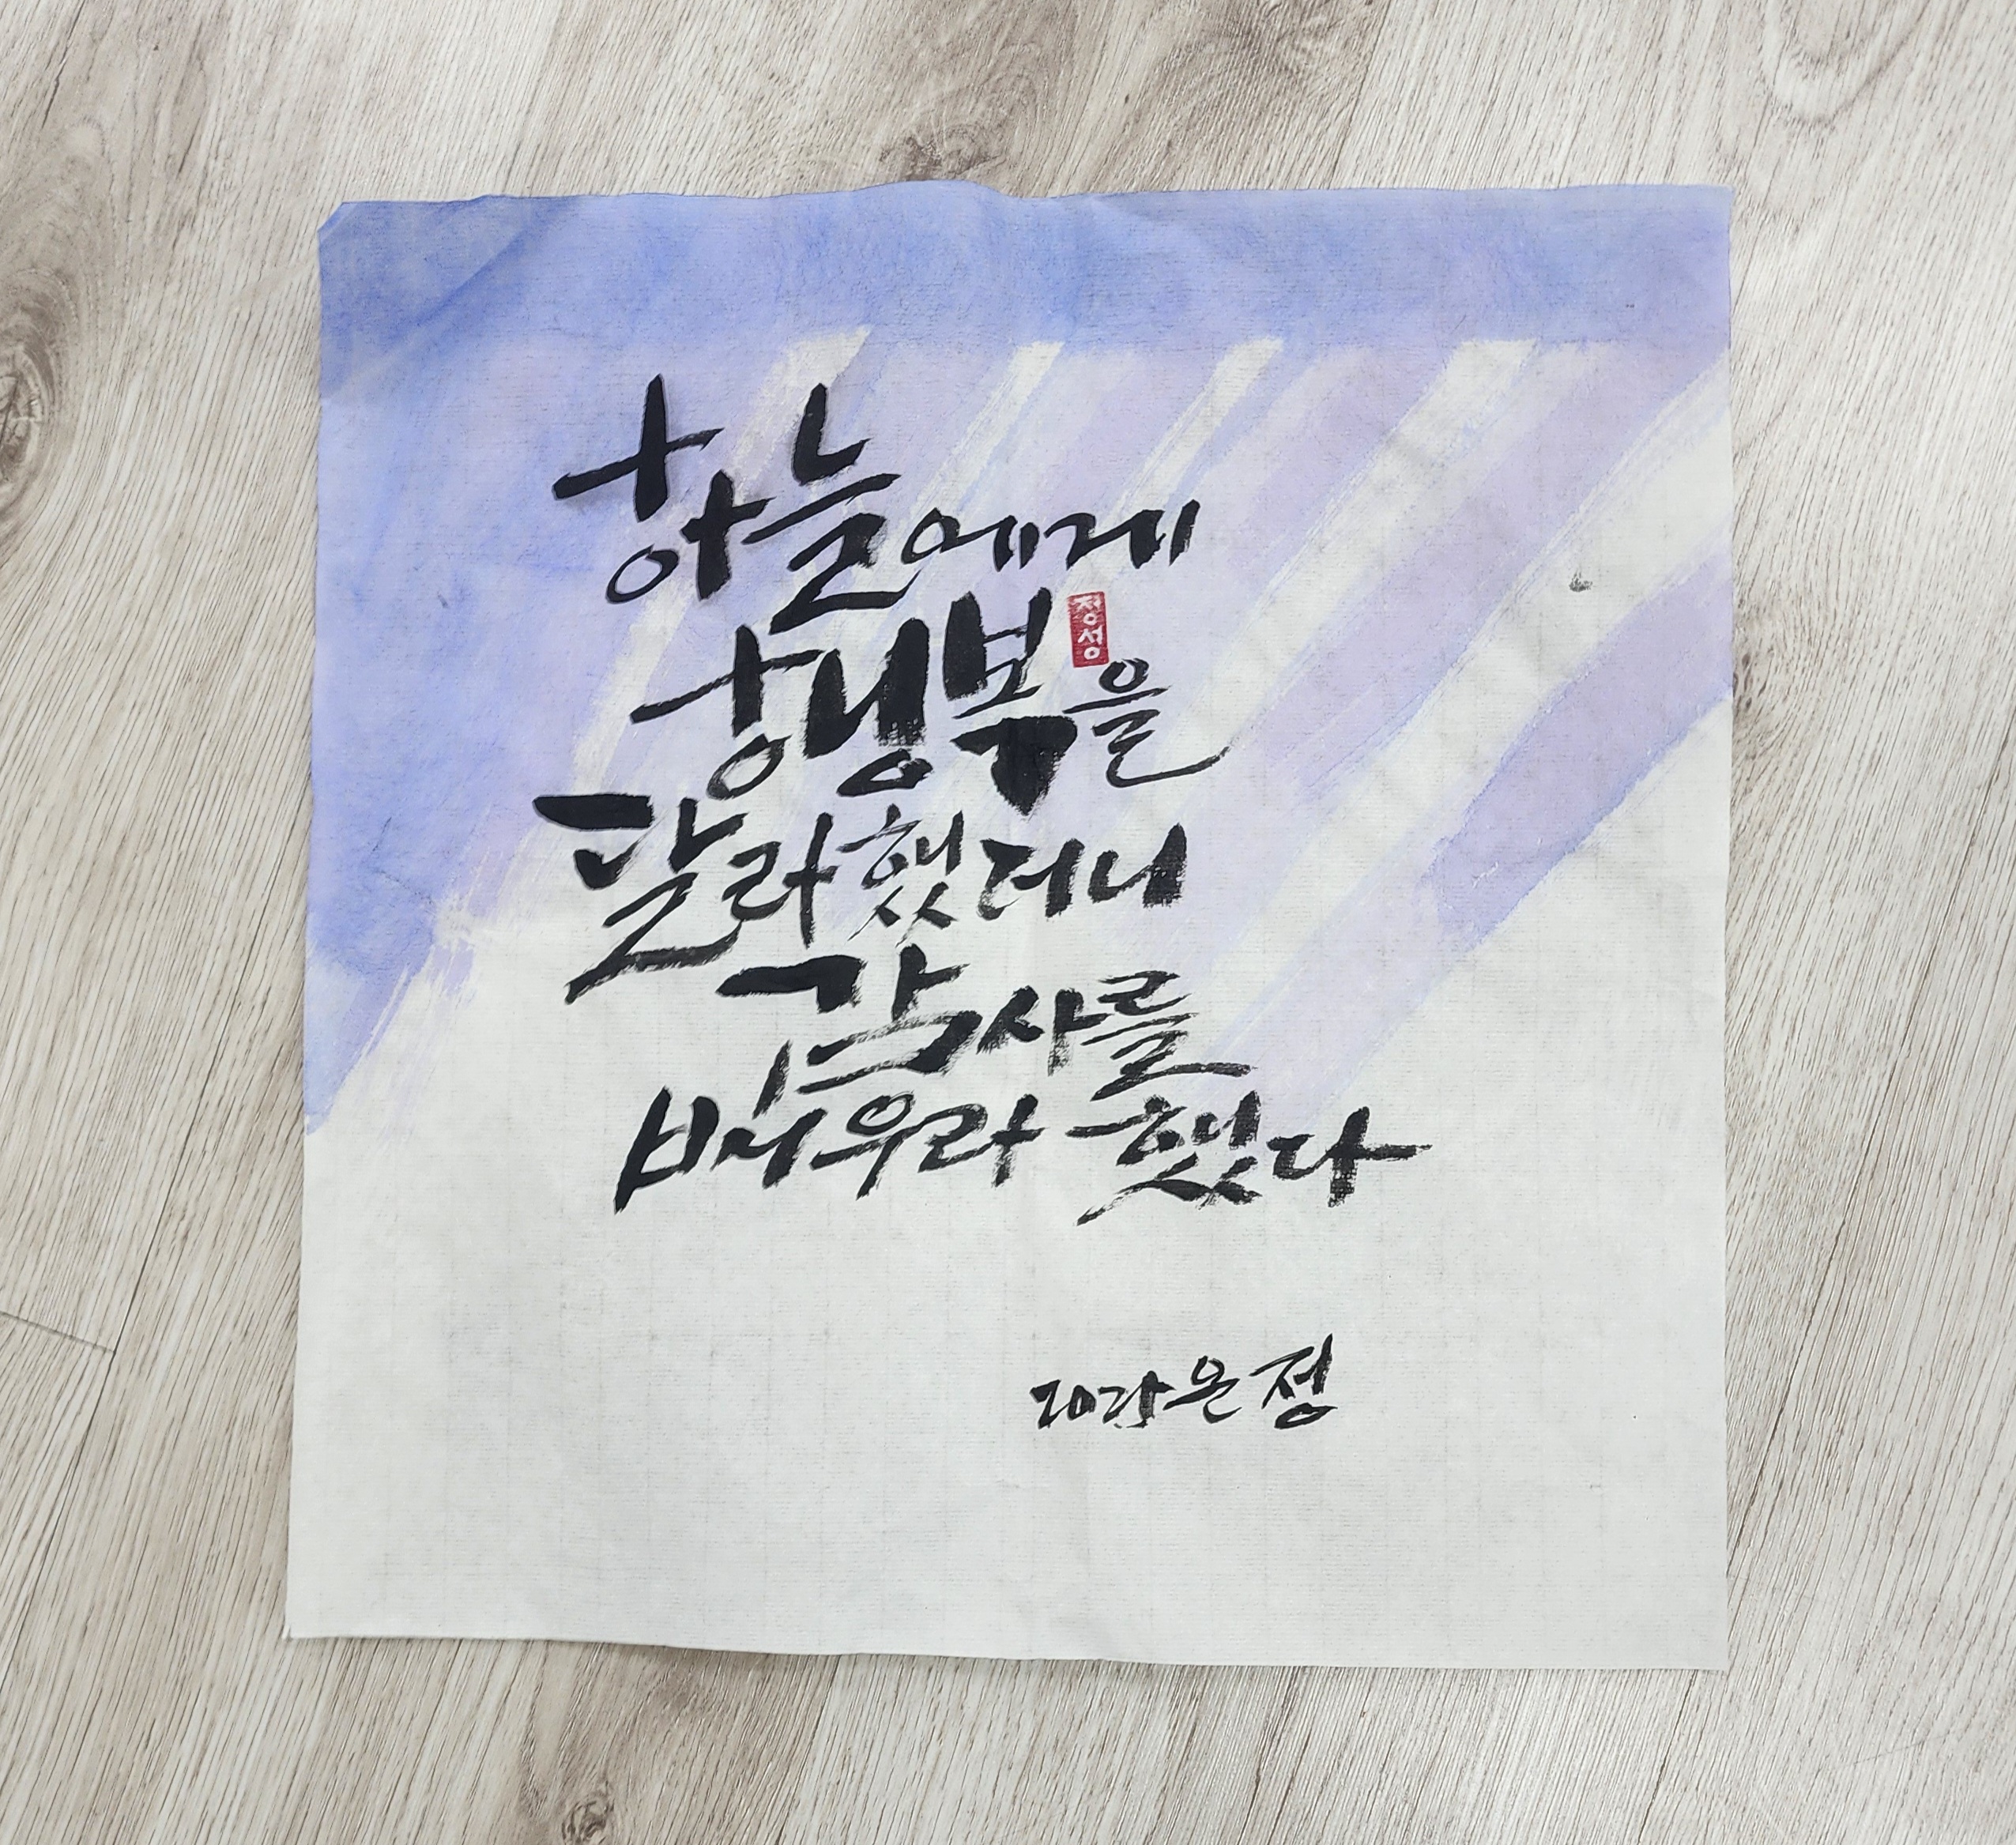 하늘에게
행복을
정성
달라했더니
감사를
배우라 했다
은정